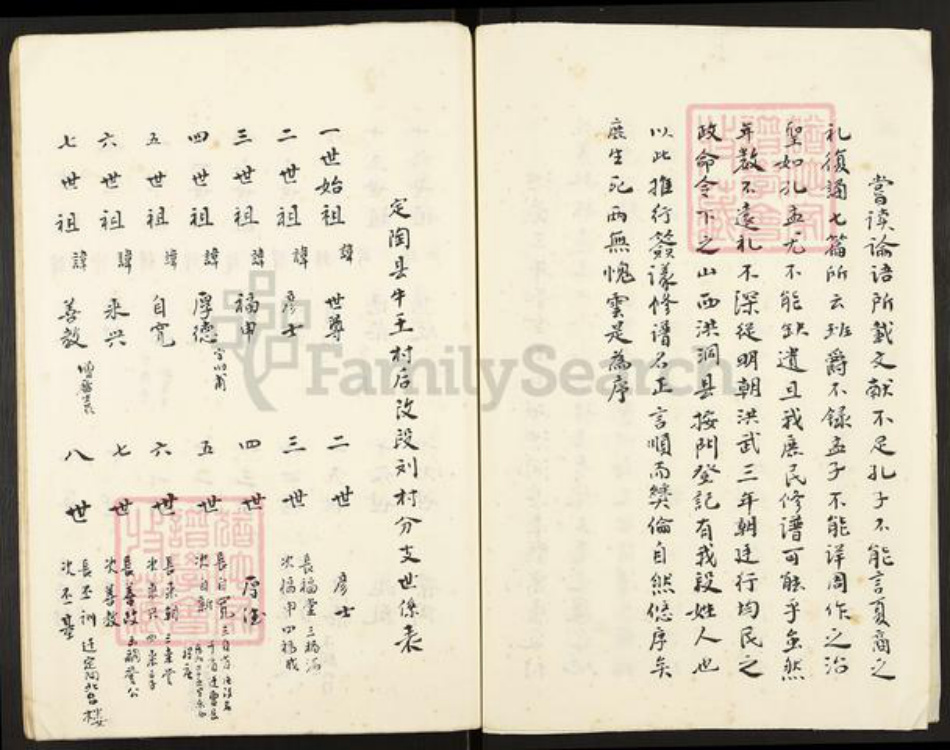 嘗读论语所載文献不足孔子不能言夏商之
礼復誦七篇所云班爵不錄孟子不能详周作之沿
聖如孔孟尤不能缺遗且我庶民修谱可能乎虽然
年数不遠礼不深從明朝洪武三年朝廷行均民之
政命令下之山西洪洞县按門登記有我段姓人也
以此推行簽議修谱名正言順而彝倫自然悠序矣
庶生死两無愧雲是為序
定陶县牛王村后改段刘村分支世係表
一世始祖諱世尊
二世祖諱彦士
三世祖諱福申
四世祖諱厚德
五世祖諱自宽
六世祖諱来兴
七世祖諱善教
二世 彦士
三世 長福堂三福海
次福申四福成
四世 厚德
五世 長自宽
次自新
六世
七世 長善政
次善教
八世 長丕训 迁定陶北台楼
次丕基
FamilySearch